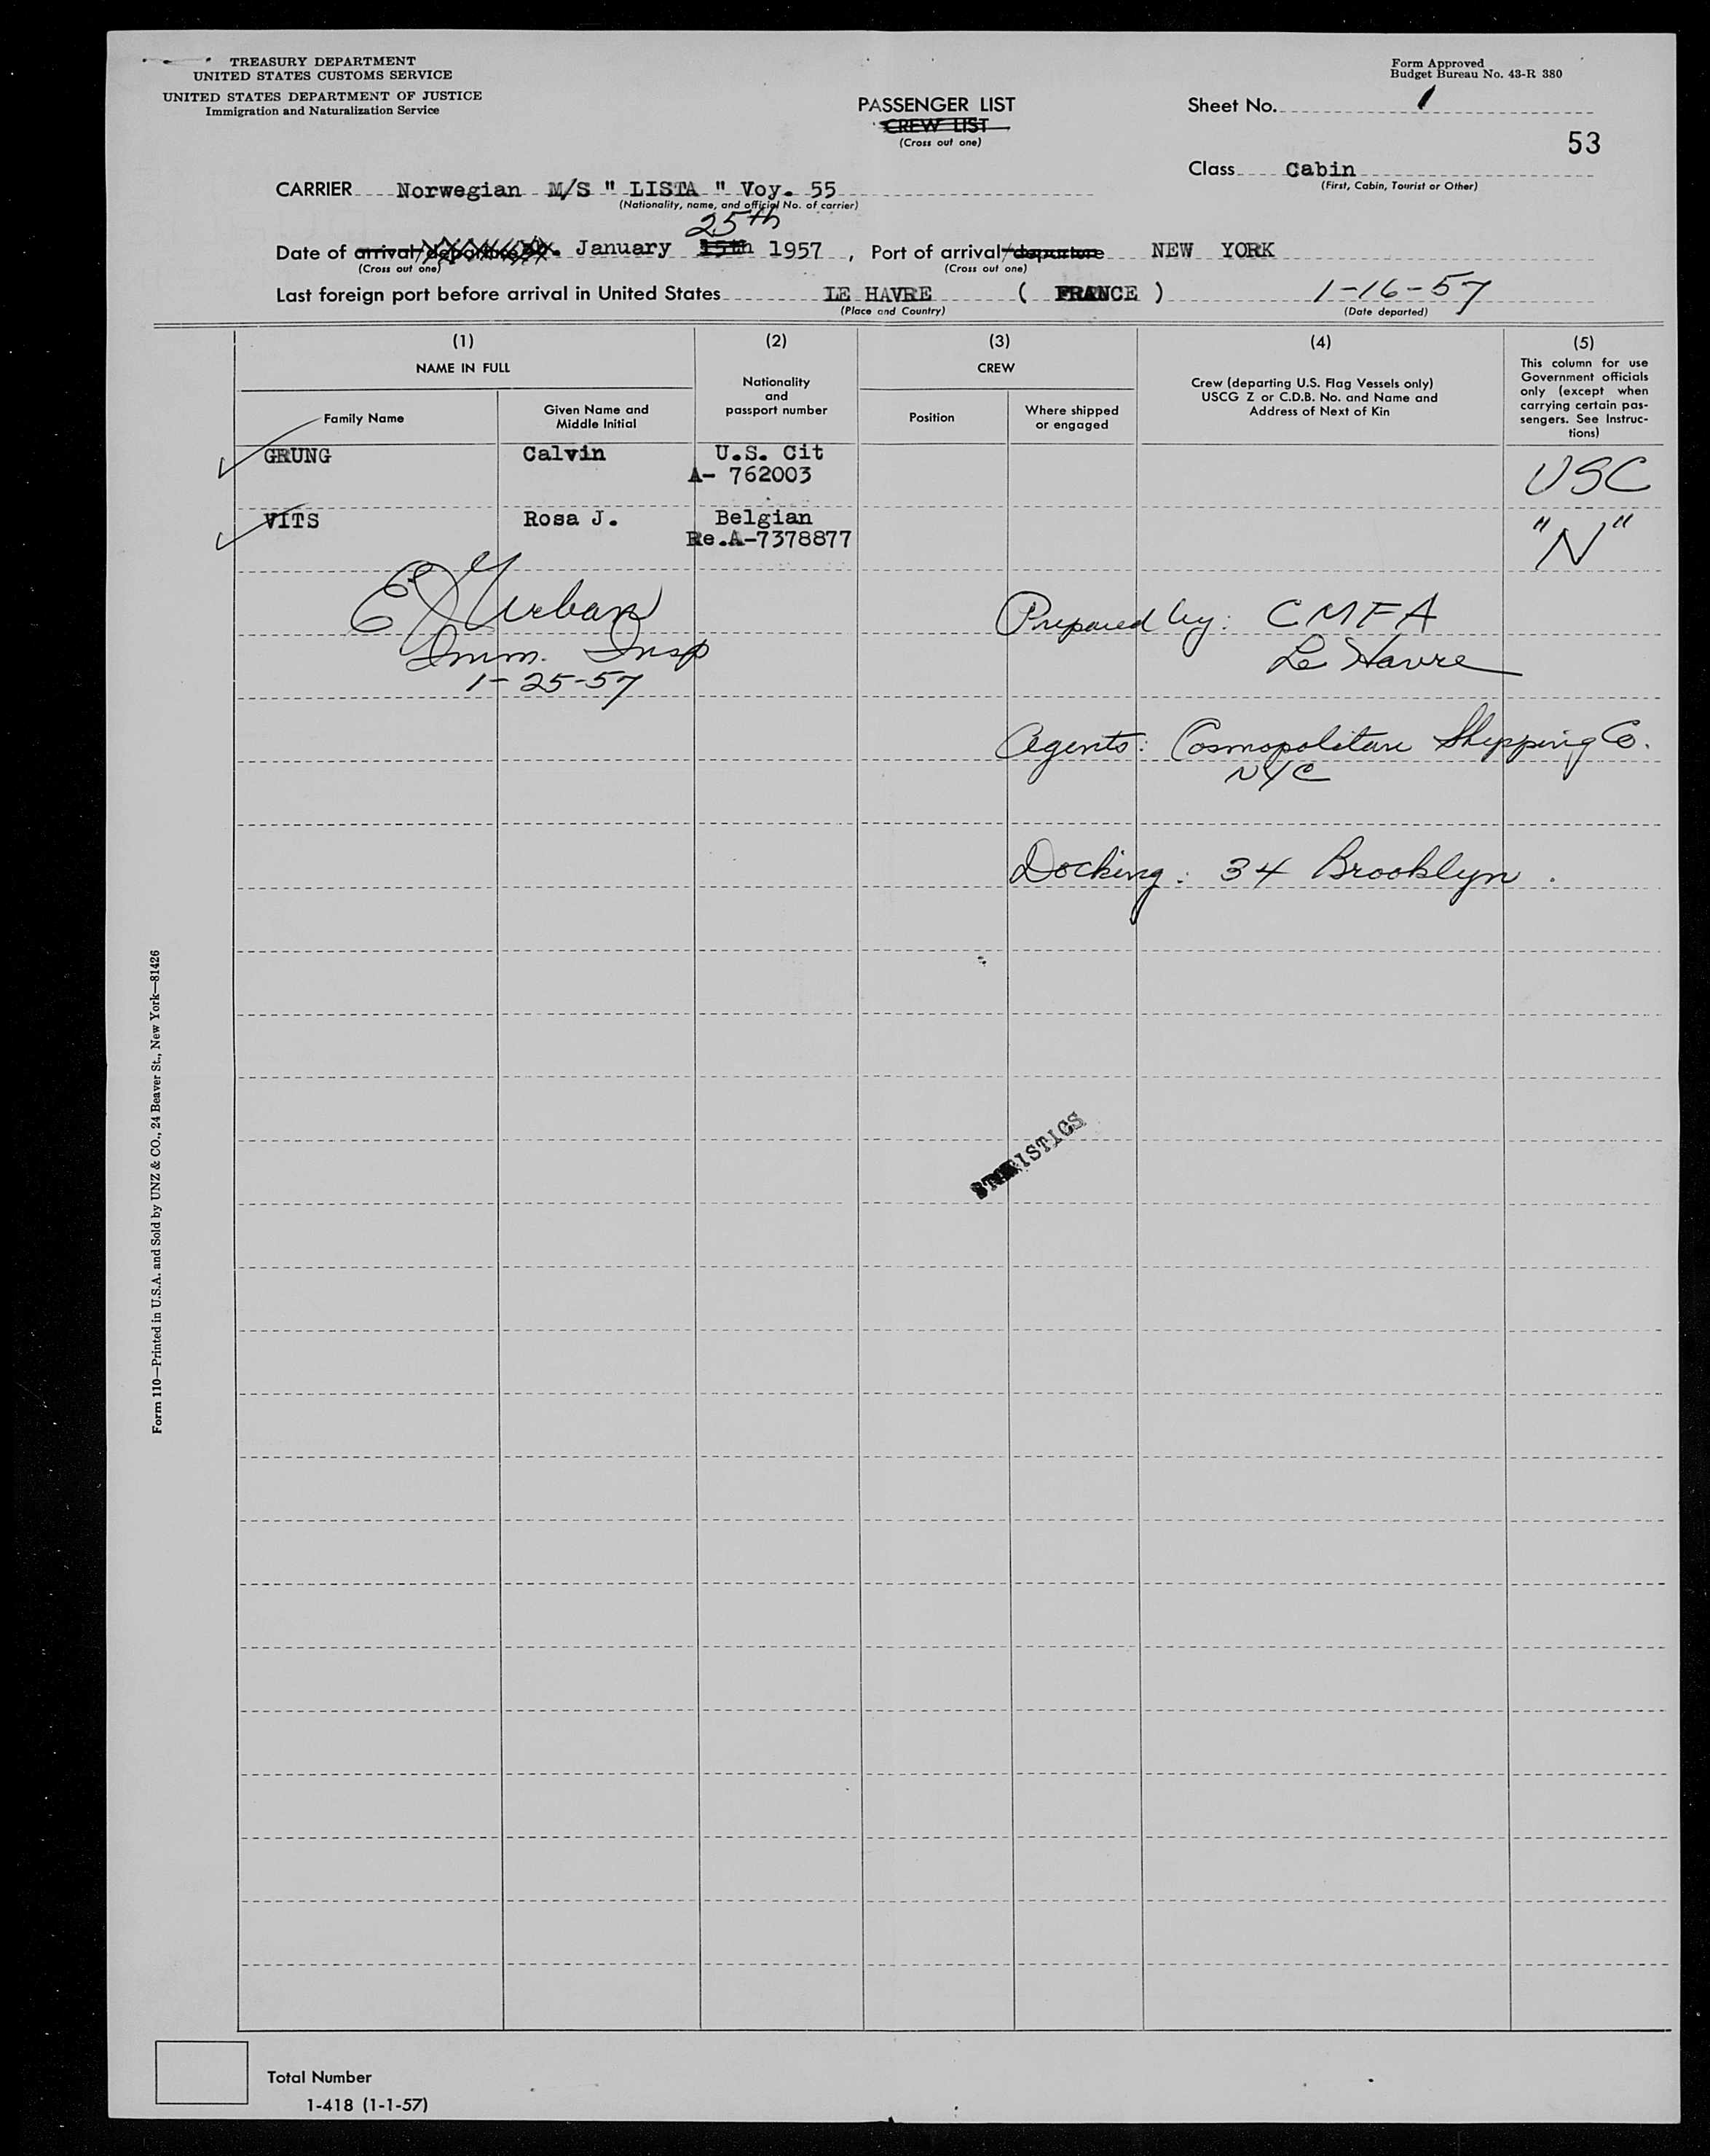 TREASURY DEPARTMENT
UNITED STATES CUSTOMS SERVICE
UNITED STATES DEPARTMENT OF JUSTICE
Immigration and Naturalization Service
Form Approved
Budget Bureau No. 43-R 380
PASSENGER LIST
CREW LIST
(Cross out one)
Sheet No. 1
53
Class Cabin
(First, Cabin, Tourist or Other)
CARRIER Norwegian M/S " LISTA " Voy. 55
(Nationality, name, and official No. of carrier)
25th
Date of arrival/departure January 15th 1957 , Port of arrival/departure NEW YORK
(Cross out one) (Cross out one)
Last foreign port before arrival in United States LE HAVRE ( FRANCE ) 1-16-57
(Place and Country) (Date departed)
(1) (2) (3) (4) (5)
NAME IN FULL
Family Name
Given Name and
Middle Initial
Nationality
and
passport number
CREW
Position
Where shipped
or engaged
Crew (departing U.S. Flag Vessels only)
USCG Z or C.D.B. No. and Name and
Address of Next of Kin
This column for use
Government officials
only (except when
carrying certain pas-
sengers. See Instruc-
tions)
GRUNG Calvin U.S. Cit USC
A- 762003
VITS Rosa J. Belgian "N"
Re.A-7378877
E J Urban
Imm. Insp
1-25-57
Prepared by: CMFA
Le Havre
Agents: Cosmopolitan Shipping Co.
NYC
Docking: 34 Brooklyn.
STATISTICS
Form 110—Printed in U.S.A. and Sold by UNZ & CO., 24 Beaver St., New York—81426
Total Number
1-418 (1-1-57)